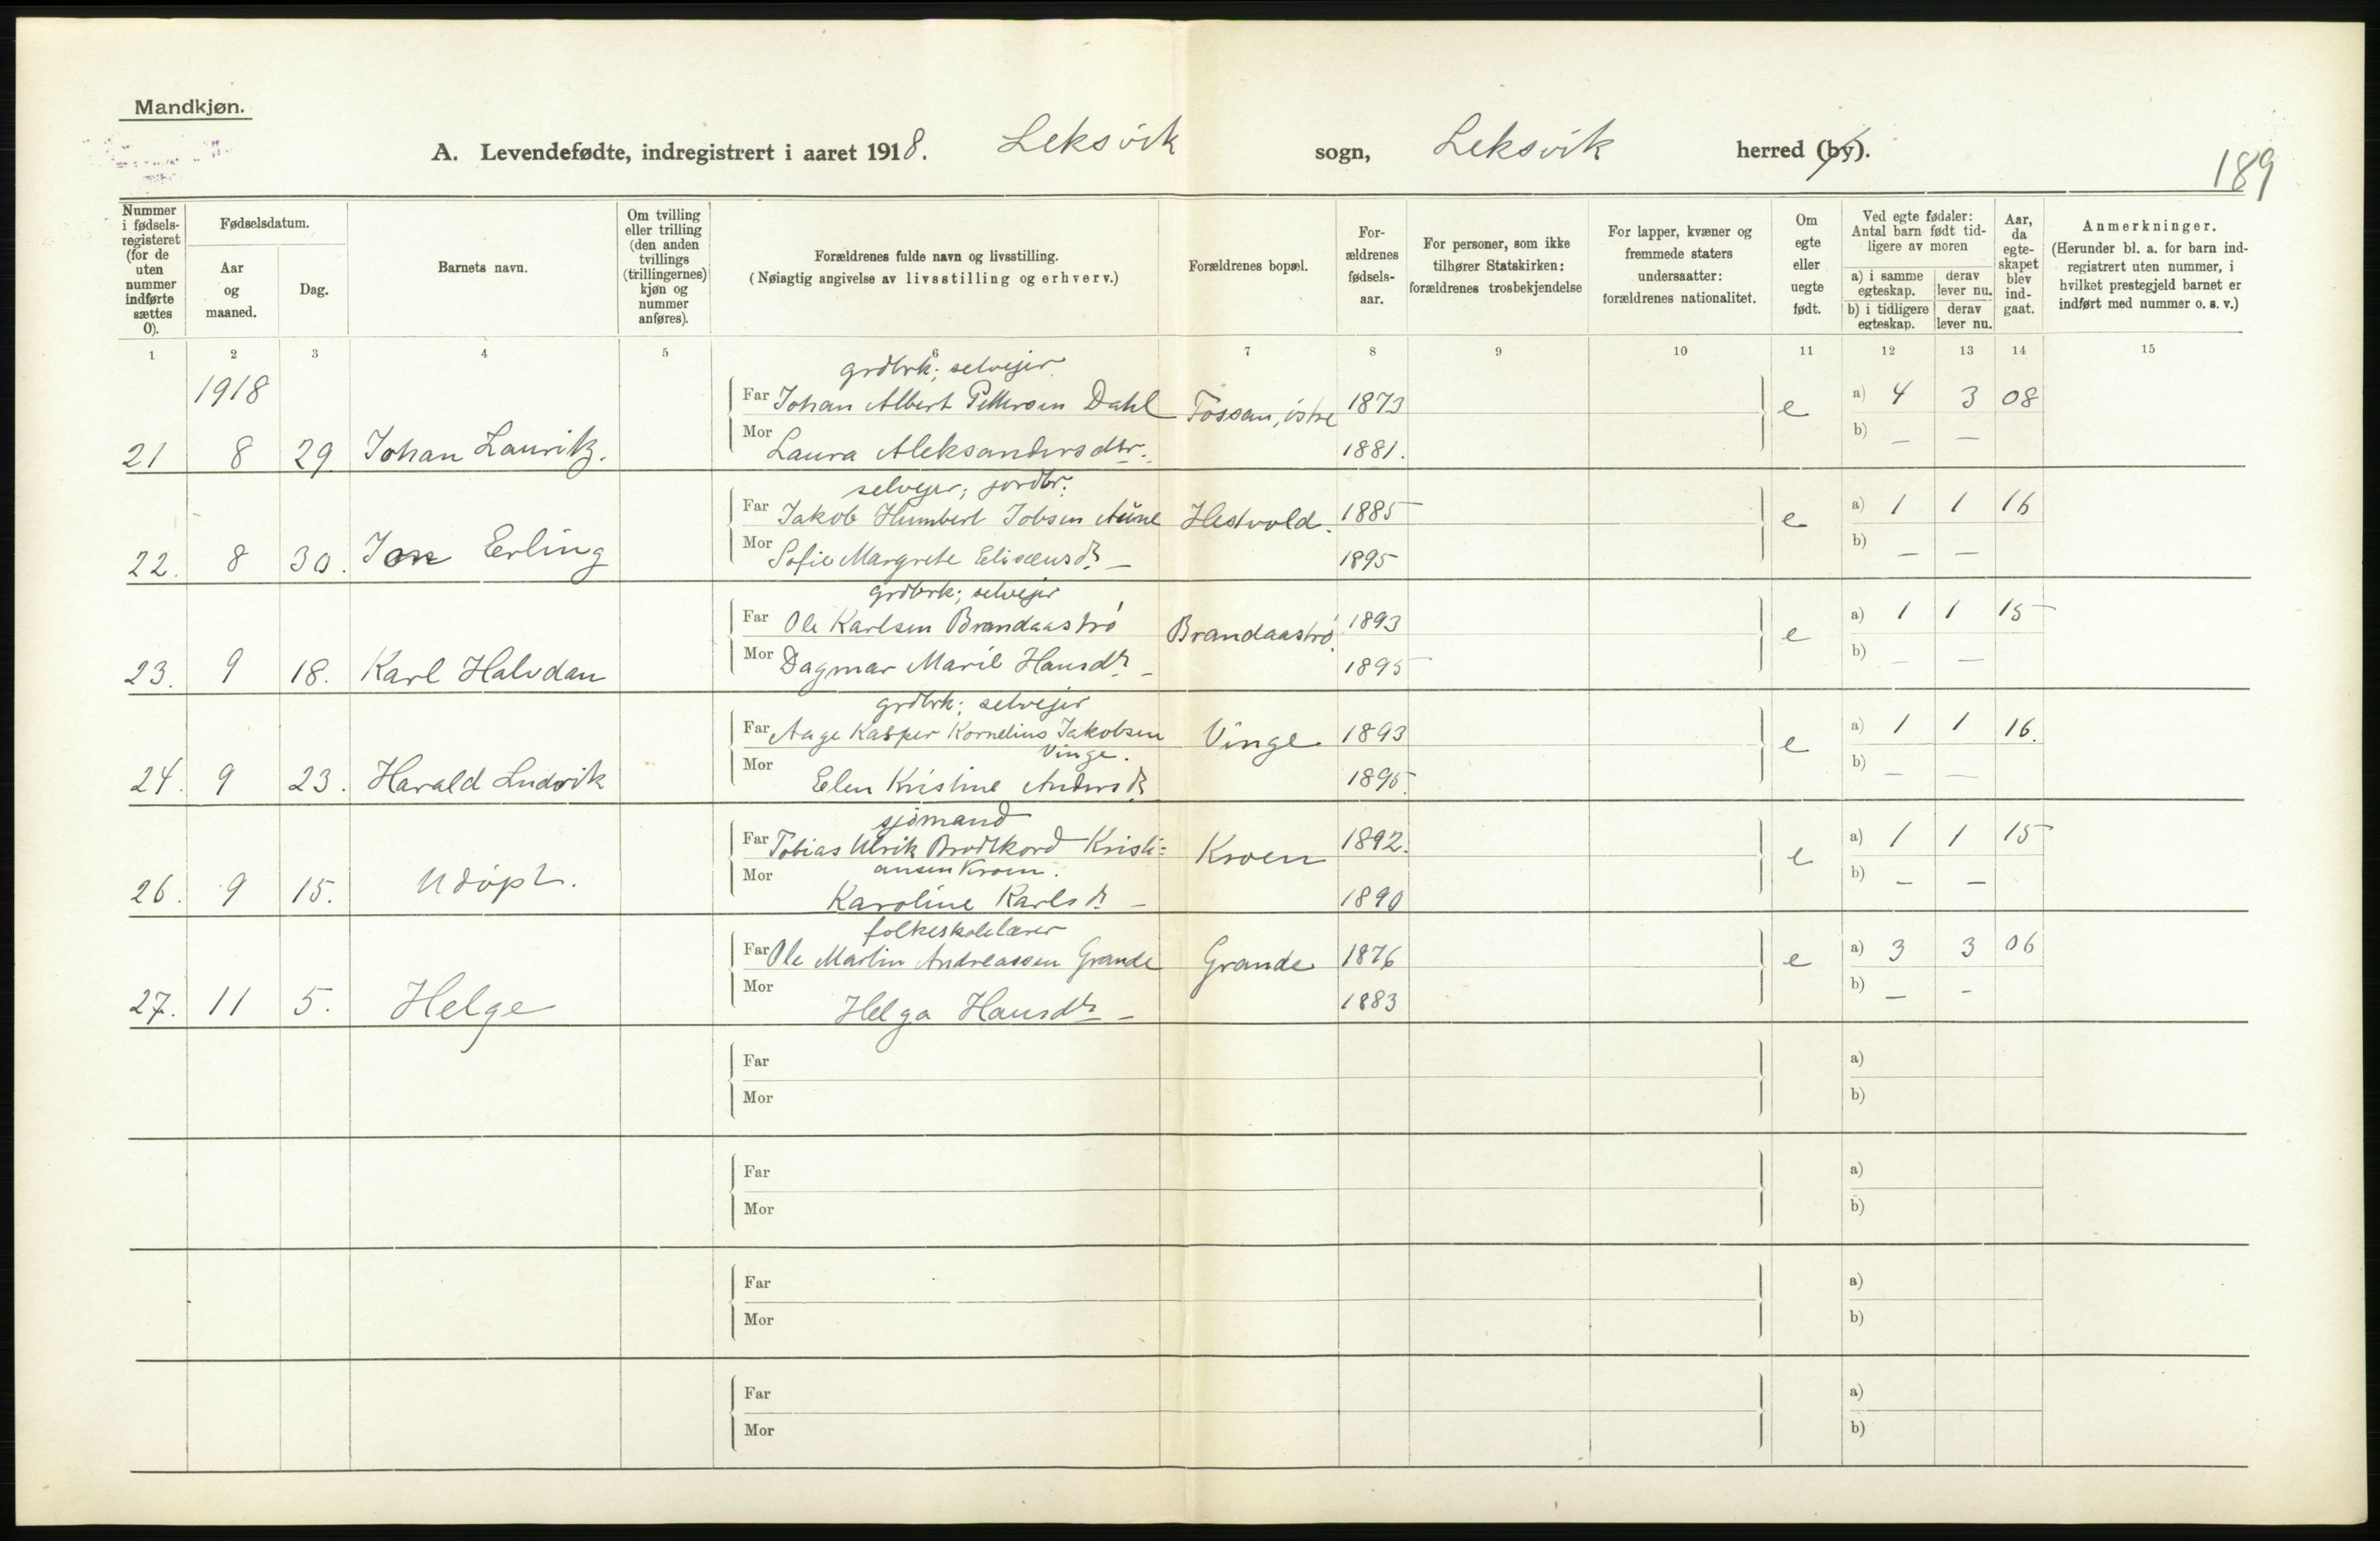 Mandkjøn.
A. Levendefødte, indregistrert i aaret 1918. Leksvik sogn, Leksvik herred (by).
189
Nummer i fødselsregisteret (for de uten nummer indførte sættes 0).
Fødselsdatum.
Aar og maaned.
Dag.
Barnets navn.
Om tvilling eller trilling (den anden tvillings (trillingernes) kjøn og nummer anføres).
Forældrenes fulde navn og livsstilling.
(Nøiagtig angivelse av livsstilling og erhverv.)
Forældrenes bopæl.
Forældrenes fødselsaar.
For personer, som ikke tilhører Statskirken: forældrenes trosbekjendelse
For lapper, kvæner og fremmede staters undersaatter: forældrenes nationalitet.
Om egte eller uegte født.
Ved egte fødsler: Antal barn født tidligere av moren
a) i samme egteskap. derav lever nu.
b) i tidligere egteskap. derav lever nu.
Aar, da egteskapet blev indgaat.
Anmerkninger.
(Herunder bl. a. for barn indregistrert uten nummer, i hvilket prestegjeld barnet er indført med nummer o. s. v.)
1 2 3 4 5 6 7 8 9 10 11 12 13 14 15
1918
grdbrk; selvejer
Far Johan Albert Pettersen Dahl Fossan, østre 1873 e a) 4 3 08
21 8 29 Johan Lauritz. Mor Laura Aleksandersdtr. 1881. b) — —
selvejer; jordbr.
Far Jakob Humbert Jobsen Aune Hestvold. 1885 e a) 1 1 16
22. 8 30. Jon Erling Mor Sofie Margrete Elisæusdr — 1895 b) — —
grdbrk; selvejer
Far Ole Karlsen Brandaastrø Brandaastrø. 1893 e a) 1 1 15
23. 9 18. Karl Halvdan Mor Dagmar Marie Hansdtr — 1895 b) — —
grdbrk; selvejer
Far Aage Kasper Kornelius Jakobsen Vinge 1893 e a) 1 1 16.
Vinge.
24. 9 23. Harald Ludvik Mor Elen Kristine Andersdr 1895. b) — —
sjømand
Far Tobias Ulrik Brodtkord Kristi= Kroen 1892. e a) 1 1 15
ansen Kroen.
26. 9 15. Udøpt. Mor Karoline Karlsdr — 1890 b) — —
folkeskolelærer
Far Ole Martin Andreassen Grande Grande 1876 e a) 3 3 06
27. 11 5. Helge Mor Helga Hansdtr — 1883 b) — —
Far a)
Mor b)
Far a)
Mor b)
Far a)
Mor b)
Far a)
Mor b)